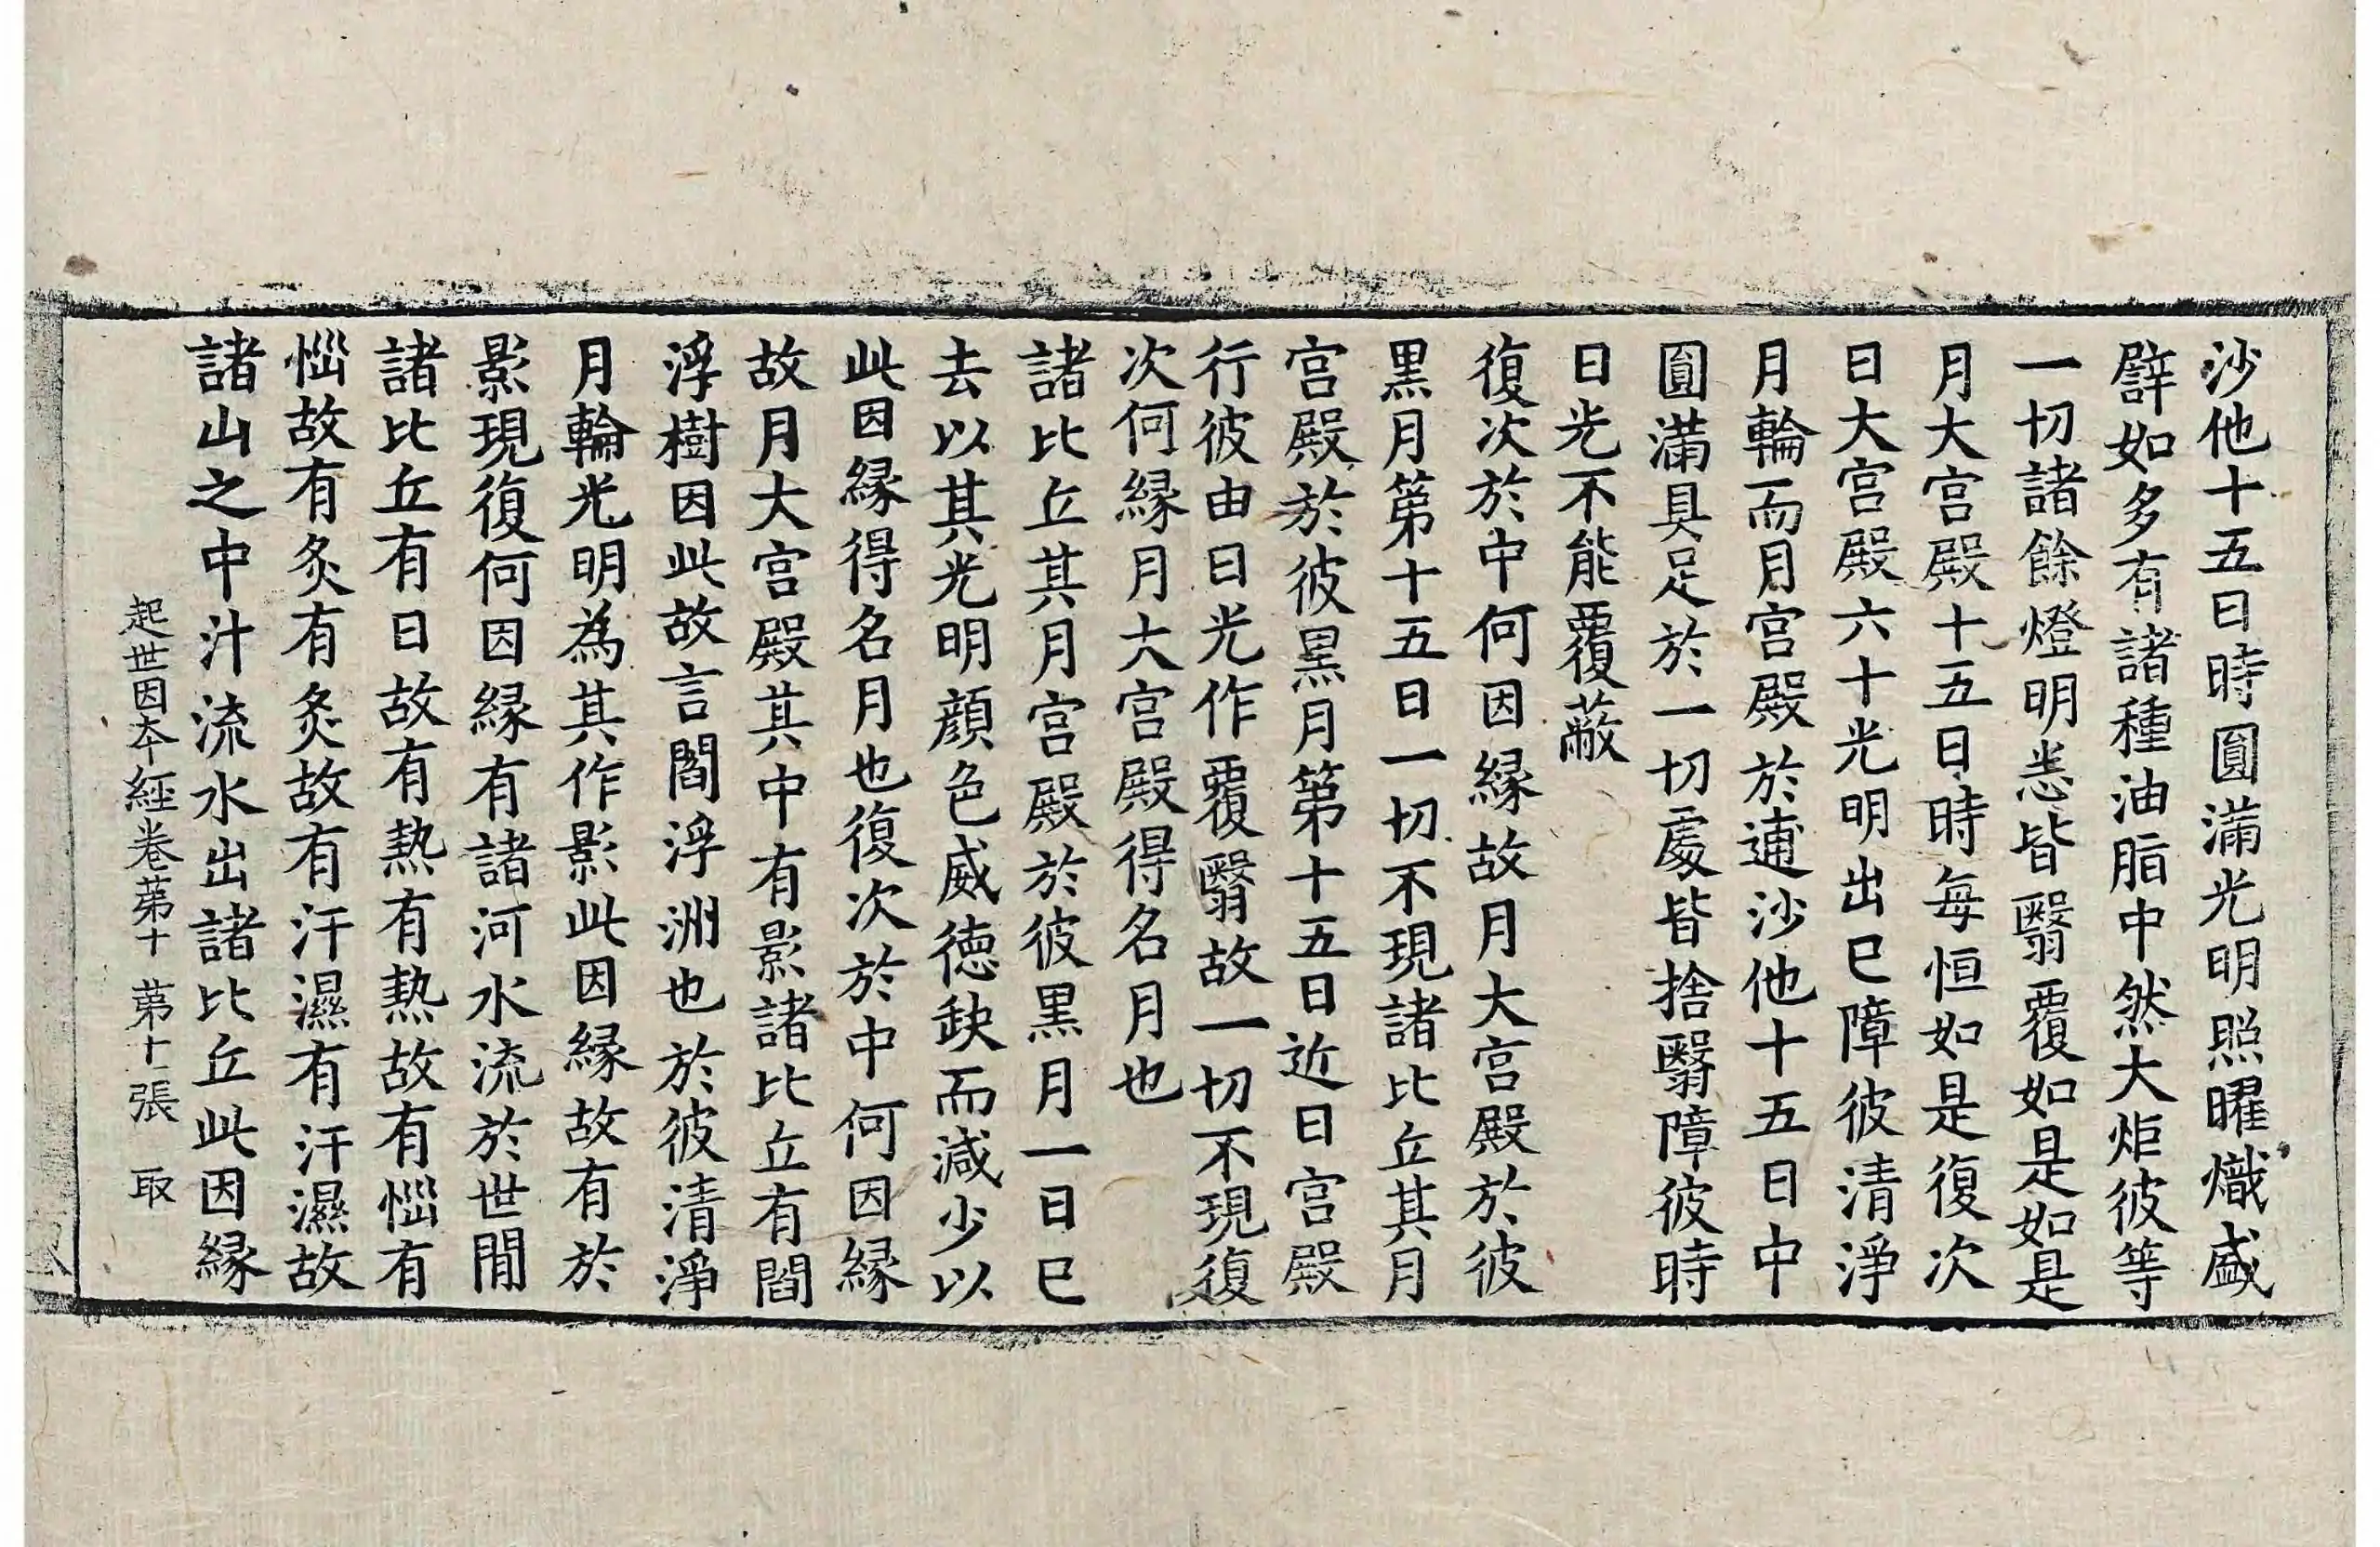 沙他十五日時圓滿光明照曜熾盛
譬如多有諸種油脂中然大炬彼等
一切諸餘燈明悉皆翳覆如是如是
月大宮殿十五日時每恒如是復次
日大宮殿六十光明出已障彼清淨
月輪而月宮殿於逋沙他十五日中
圓滿具足於一切處皆捨翳障彼時
日光不能覆蔽
復次於中何因緣故月大宮殿於彼
黑月第十五日一切不現諸比丘其月
宮殿於彼黑月第十五日近日宮殿
行彼由日光作覆翳故一切不現復
次何緣月大宮殿得名月也
諸比丘其月宮殿於彼黑月一日已
去以其光明顏色威德缺而減少以
此因緣得名月也復次於中何因緣
故月大宮殿其中有影諸比丘有閻
浮樹因此故言閻浮洲也於彼清淨
月輪光明為其作影此因緣故有於
影現復何因緣有諸河水流於世閒
諸比丘有日故有熱有熱故有惱有
惱故有炙有炙故有汗濕有汗濕故
諸山之中汁流水出諸比丘此因緣
起世因本經卷第十 第十一張 取